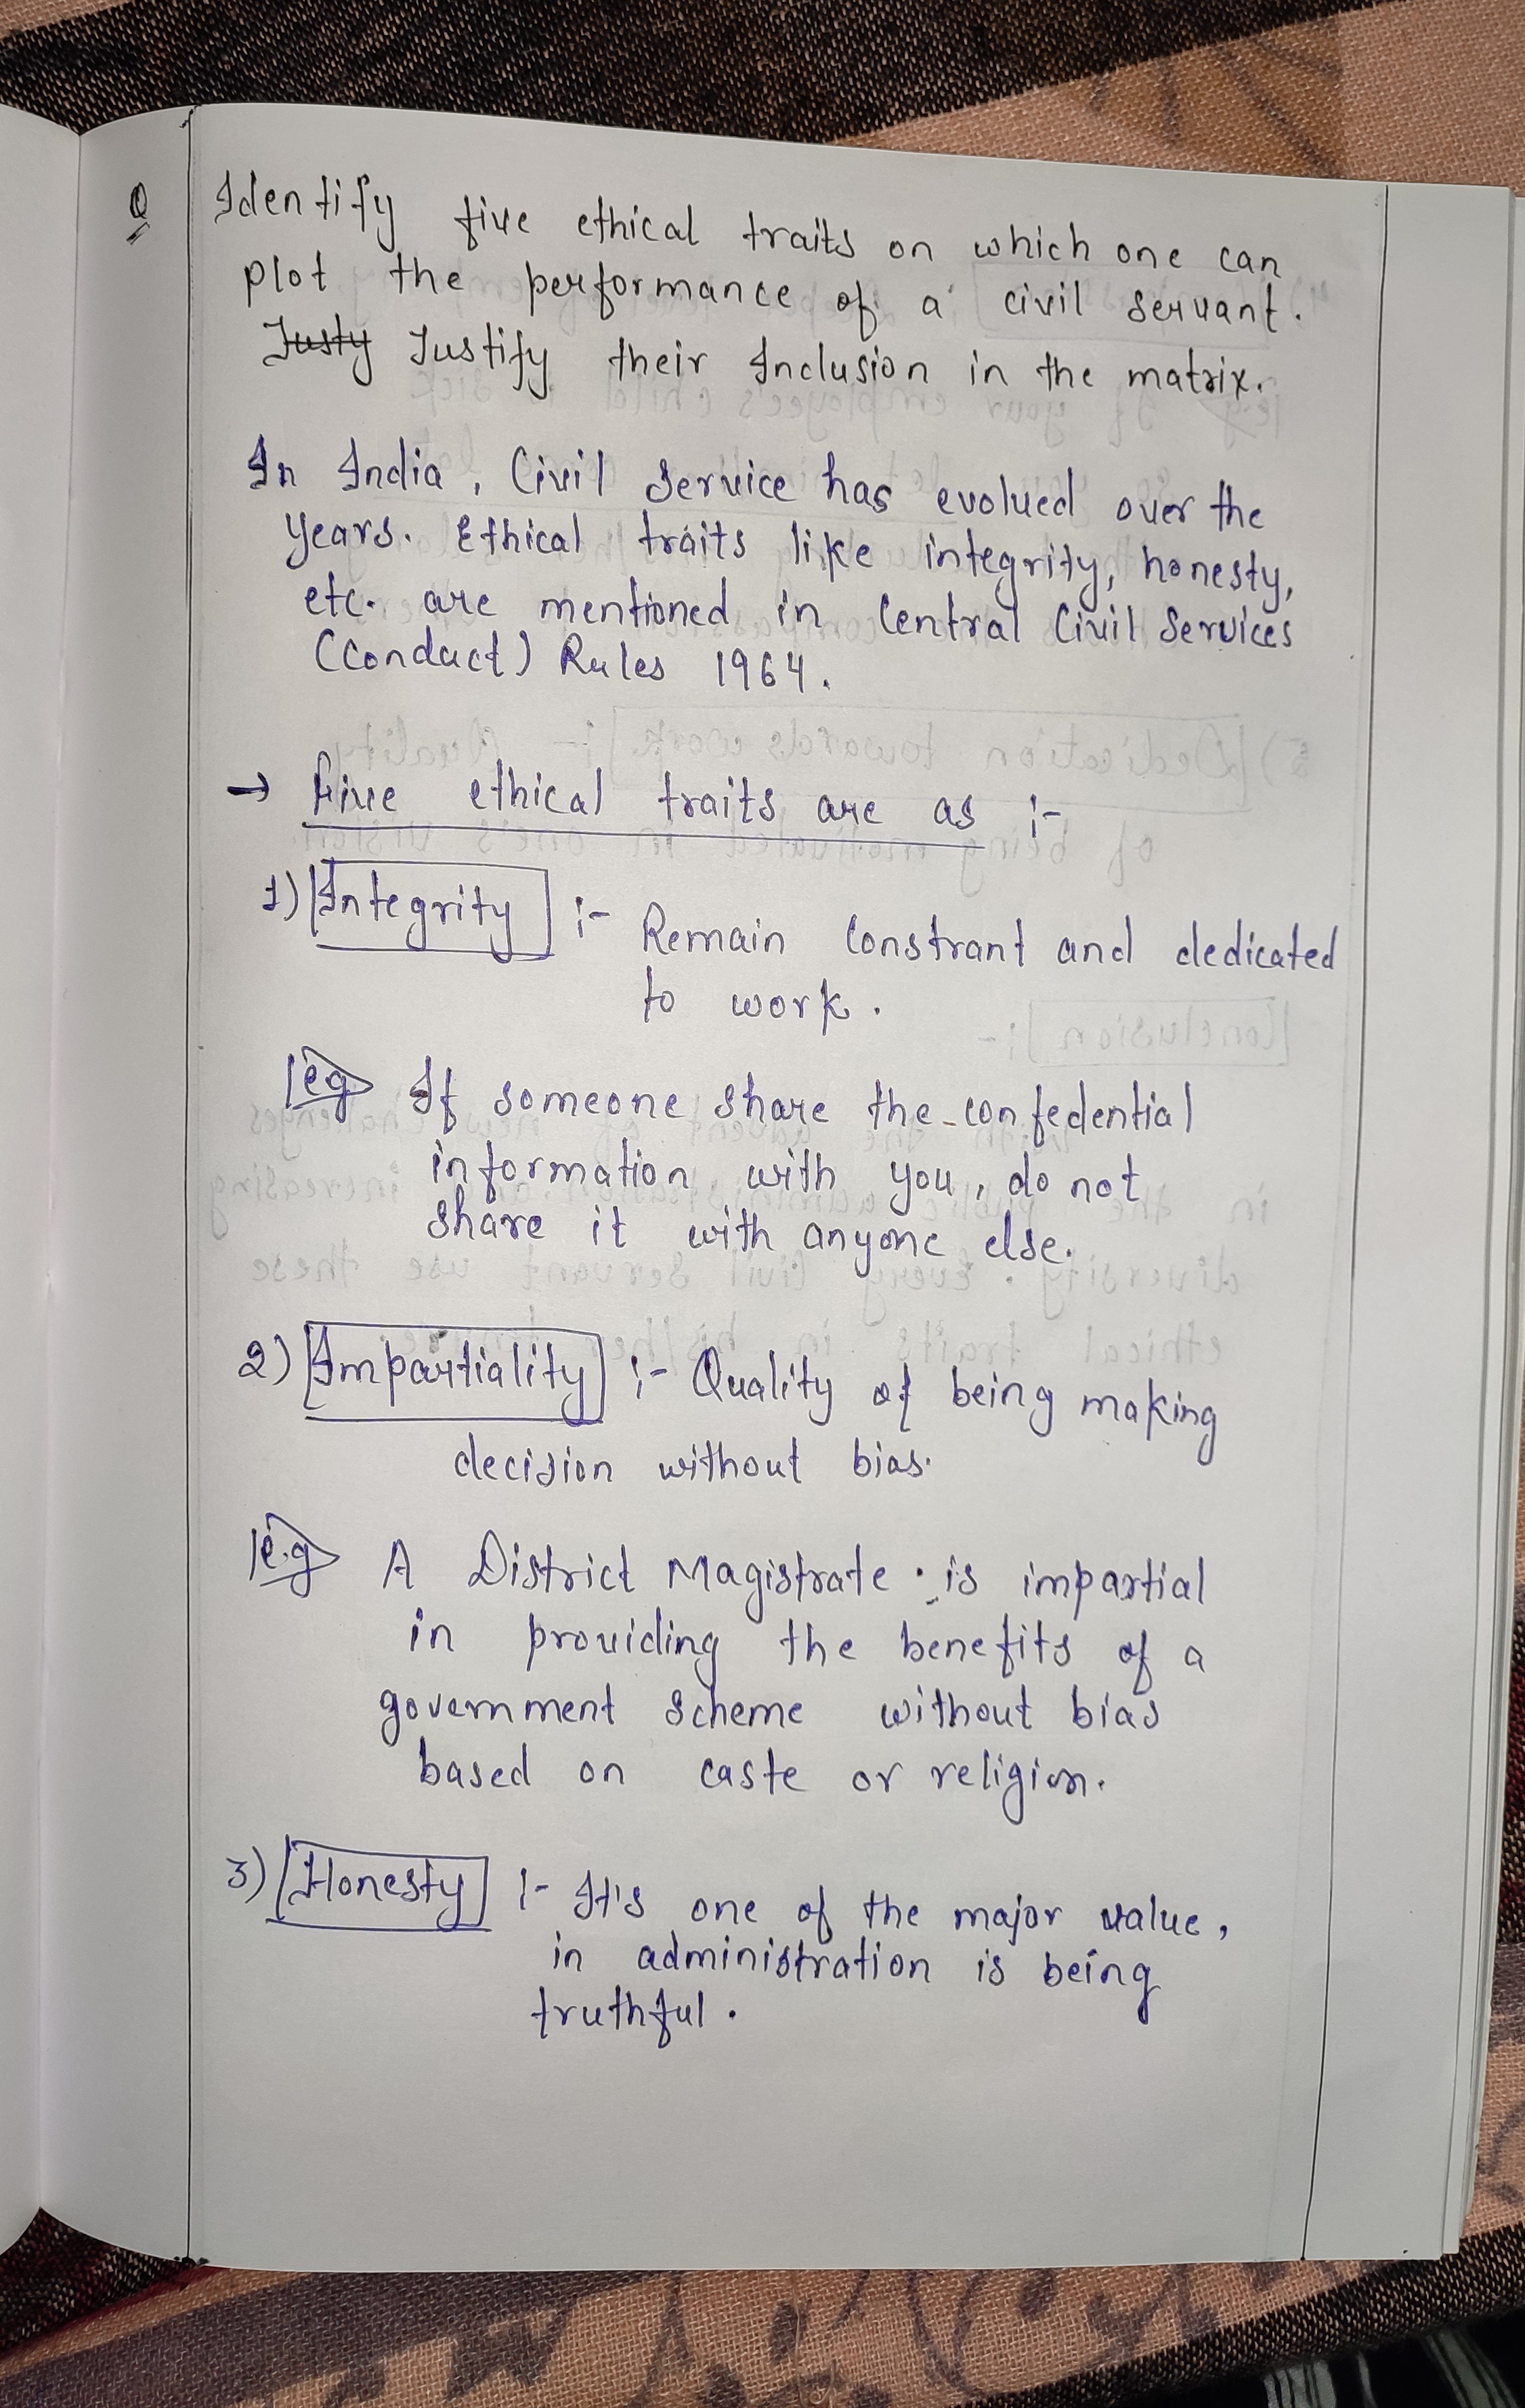 Q Identify five ethical traits on which one can
plot the performance of a civil servant.
Justy Justify their Inclusion in the matrix.
In India, Civil Service has evolved over the
years. Ethical traits like integrity, honesty,
etc. are mentioned in Central Civil Services
(Conduct) Rules 1964.
→ Five ethical traits are as :-
1) Integrity :- Remain Constrant and dedicated
to work.
eg If someone share the confedential
information with you, do not
share it with anyone else.
2) Impartiality :- Quality of being making
decision without bias.
e.g A District Magistrate is impartial
in providing the benefits of a
government scheme without bias
based on caste or religion.
3) Honesty :- It's one of the major value,
in administration is being
truthful.